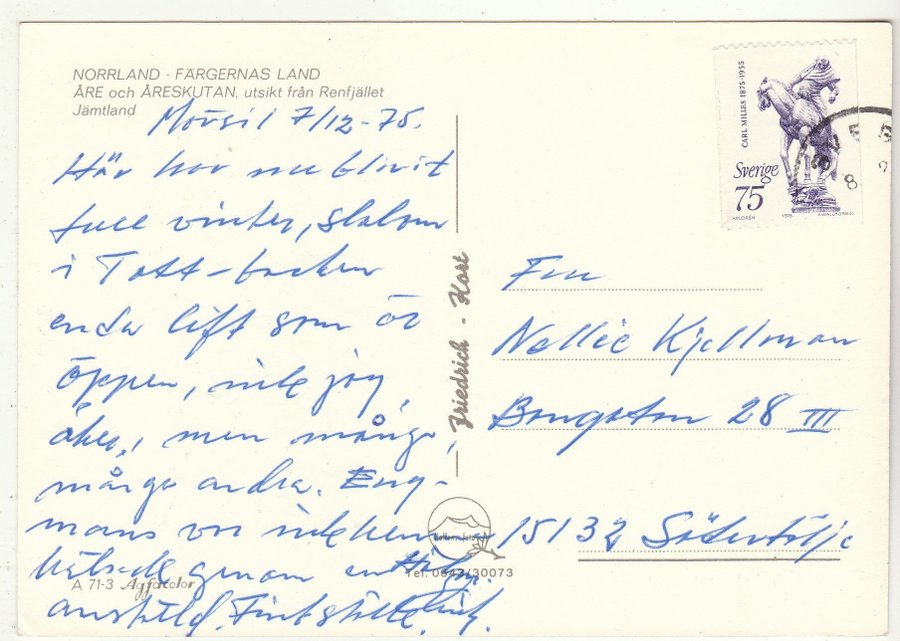 NORRLAND - FÄRGERNAS LAND
ÅRE och ÅRESKUTAN, utsikt från Renfjället
Jämtland
Mörsil 7/12-75.
Här har nu blivit
full vinter, slalom
i Tott-backen
enda lift som är
öppen, inte jag
åker, men många,
många andra. Eng-
mans var inte hem,
hälsade genom en
anställd. Fint ställe.
CARL MILLES 1875-1955
Sverige
75
1975
8
Friedrich - Kort
Fru
Nellie Kjellman
28 III
15132 Södertälje
Tel. 0647/30073
A 71-3 Agfacolor